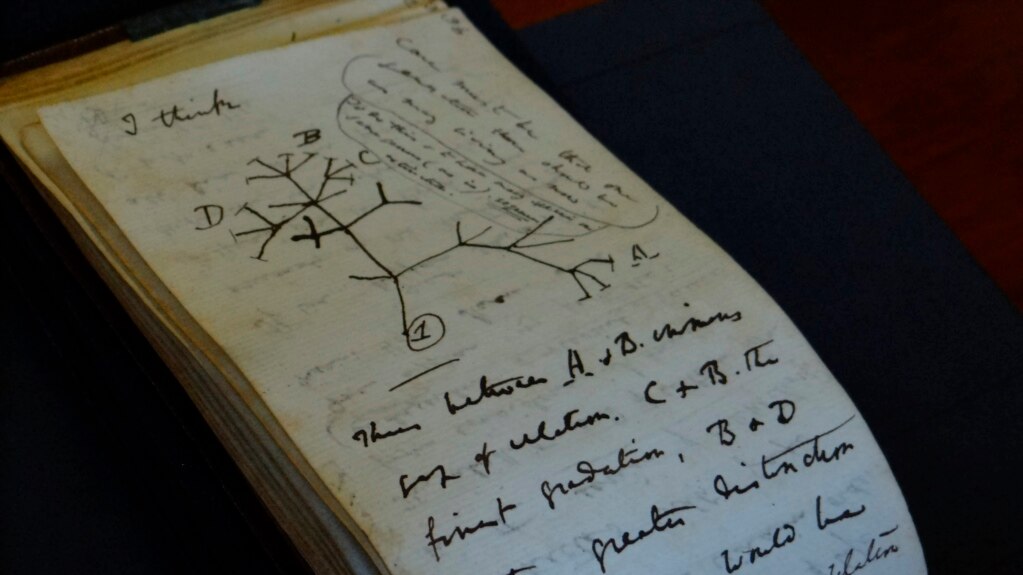 I think
36
Case must be
that one
generation then should be
as many living as now
To do this & to have many species in
same genus (as is) requires
extinction.
B
C
D
A
1
Thus between A & B. immens
gap of relation. C & B. The
finest gradation, B & D
greater distinction
would be
relation